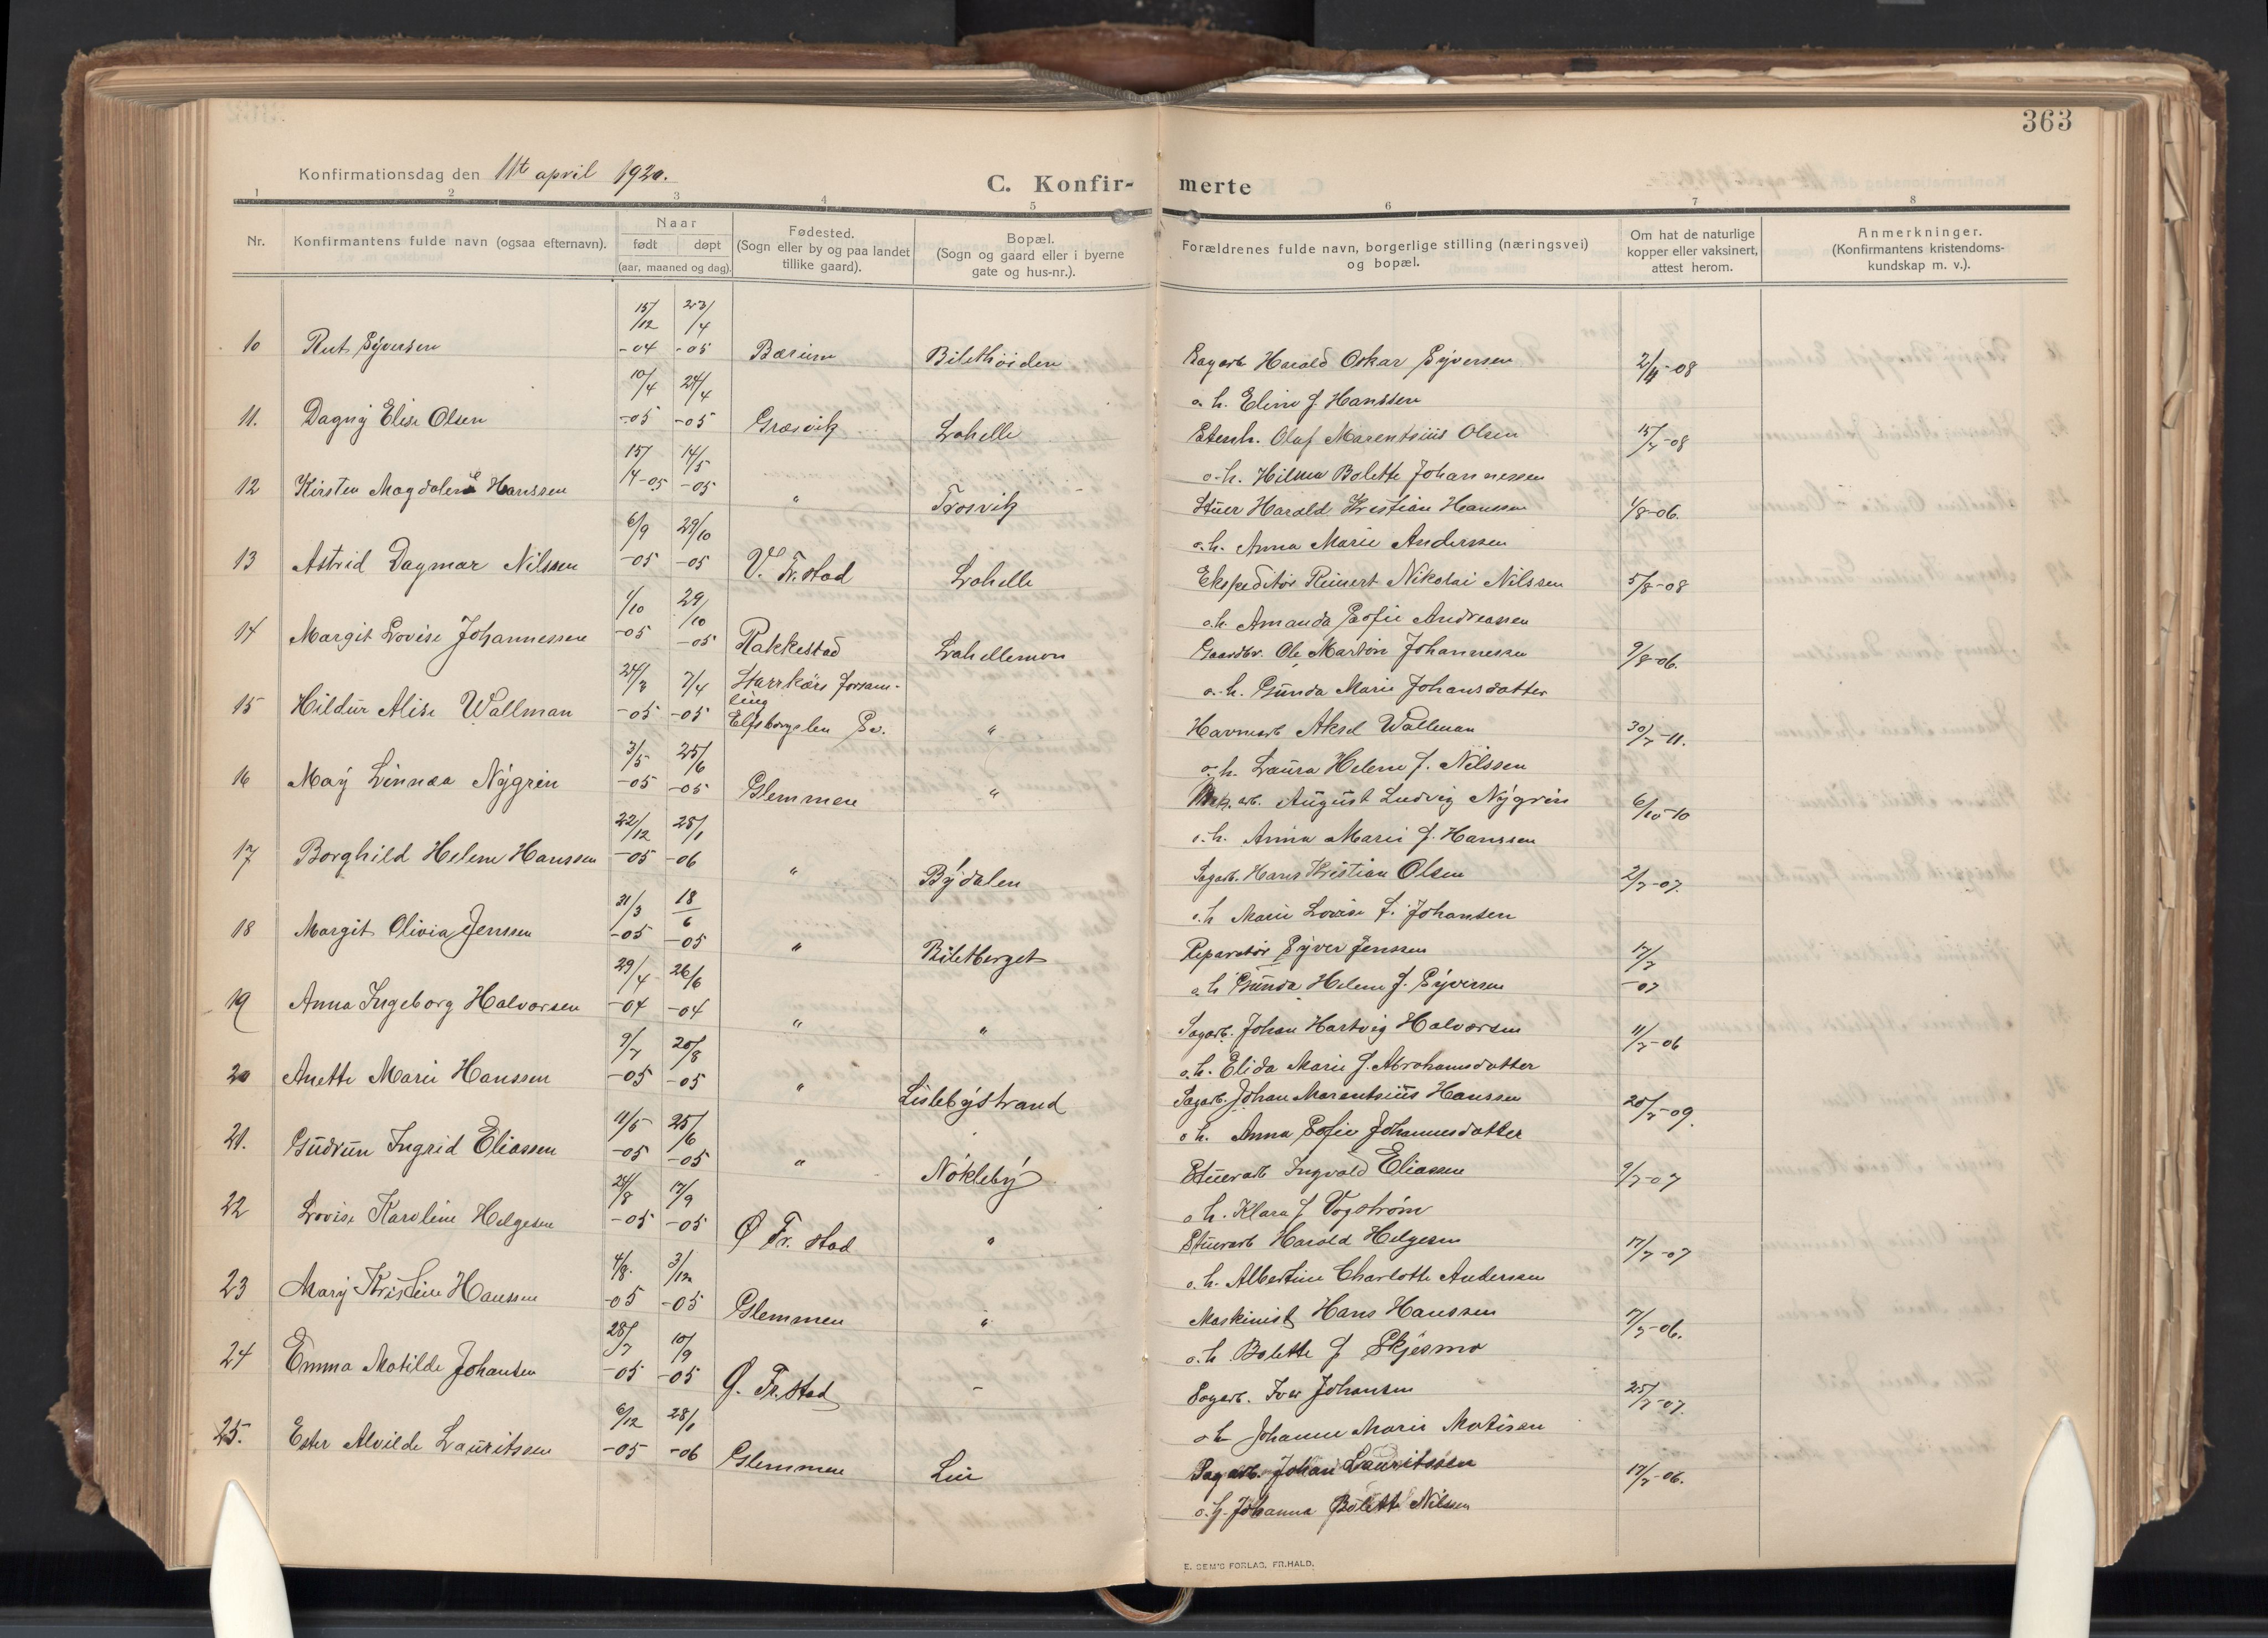 363
Konfirmationsdag den 11te april 1920.
C. Konfir- merte
1 2 3 4 5 6 7 8
Nr.
Konfirmantens fulde navn (ogsaa efternavn).
Naar
født døpt
(aar, maaned og dag).
Fødested.
(Sogn eller by og paa landet
tillike gaard).
Bopæl.
(Sogn og gaard eller i byerne
gate og hus-nr.).
Forældrenes fulde navn, borgerlige stilling (næringsvei)
og bopæl.
Om hat de naturlige
kopper eller vaksinert,
attest herom.
Anmerkninger.
(Konfirmantens kristendoms-
kundskap m. v.).
10 Rut Syversen 15/12 -04 23/4 -05 Bærum Bilethöiden Sagarb Harald Oskar Syversen 2/11-08
o. h. Eline f. Hanssen
11. Dagny Elise Olsen 10/4 -05 24/4 -05 Græsvik Lahelle Stenh. Olaf Marentsius Olsen 15/7-08
o. h. Hilma Bolette Johannessen
12 Kirsten Magdalene Hanssen 15/4-05 14/5 -05 " Trosvik Stuer Harald Kristian Hanssen 1/8-06.
o. h. Anna Marie Anderssen
13 Astrid Dagmar Nilssen 6/9 -05 29/10 -05 V. Fr.stad Lahelle Ekspeditör Reinert Nikolai Nilssen 5/8-08
o. h. Amanda Sofie Andreassen
14 Margit Lovise Johannessen 1/10 -05 29/10 -05 Rakkestad Lahellemon Gaardbr. Ole Martin Johannessen 9/8-06.
o. h. Gunda Marie Johansdatter
15 Hildur Alise Wallman 24/3 -05 7/4 -05 Starrkärs forsam-
ling
Elfsborgslen Sv. " Havnearb Aksel Wallman 30/7-11.
o. h. Laura Helene f. Nilssen
16 May Linnæa Nygren 3/5 -05 25/6 -05 Glemmen " arb. August Ludvig Nygren 6/10-10
o. h. Anna Marie f. Hanssen
17 Borghild Helene Hanssen 22/12 -05 28/1 -06 " Bydalen Sagarb. Hans Kristian Olsen 2/7-07.
o. h. Marie Lovise f. Johansen
18 Margit Olivia Jenssen 31/3 -05 18/6 -05 " Biletberget Reparatör Syver Jenssen 17/7 -07
o. h. Gunda Helene f. Syversen
19 Anna Ingeborg Halvorsen 29/4 -04 26/6 -04 " " Sagarb. Johan Hartvig Halvorsen 11/7-06
o. h. Elida Marie f. Abrahamsdatter
20 Anette Marie Hanssen 9/7 -05 20/8 -05 " Lislebystrand Sagarb. Johan Marentsius Hanssen 20/7-09.
o. h. Anna Sofie Johannesdatter
21. Gudrun Ingrid Eliassen 11/5 -05 25/6 -05 " Nökleby Stuerarb Ingvald Eliassen 9/7-07
o. h. Klara f Vogström
22 Lovise Karoline Helgesen 24/8 -05 17/9 -05 Ø Fr. stad " Stuerarb Harald Helgesen 17/7-07
o. h. Albertine Charlotte Andersen
23 Mary Kristine Hanssen 4/8. -05 3/12 -05 Glemmen " Maskinist Hans Hanssen 7/7-06.
o. h. Bolette f Skjesmo
24 Emma Matilde Johansen 28/7 -05 10/9 -05 Ø. Fr.stad - Sagarb. Ivar Johansen 25/7-07.
o h Johanne Marie Matisen
25. Ester Alvilde Lauritssen 6/12 -05 28/1 -06 Glemmen Lie Sagarb. Johan Lauritssen 17/7-06.
o. h. Johanna Bolette Nilssen
E. SEM'S FORLAG, FR.HALD.